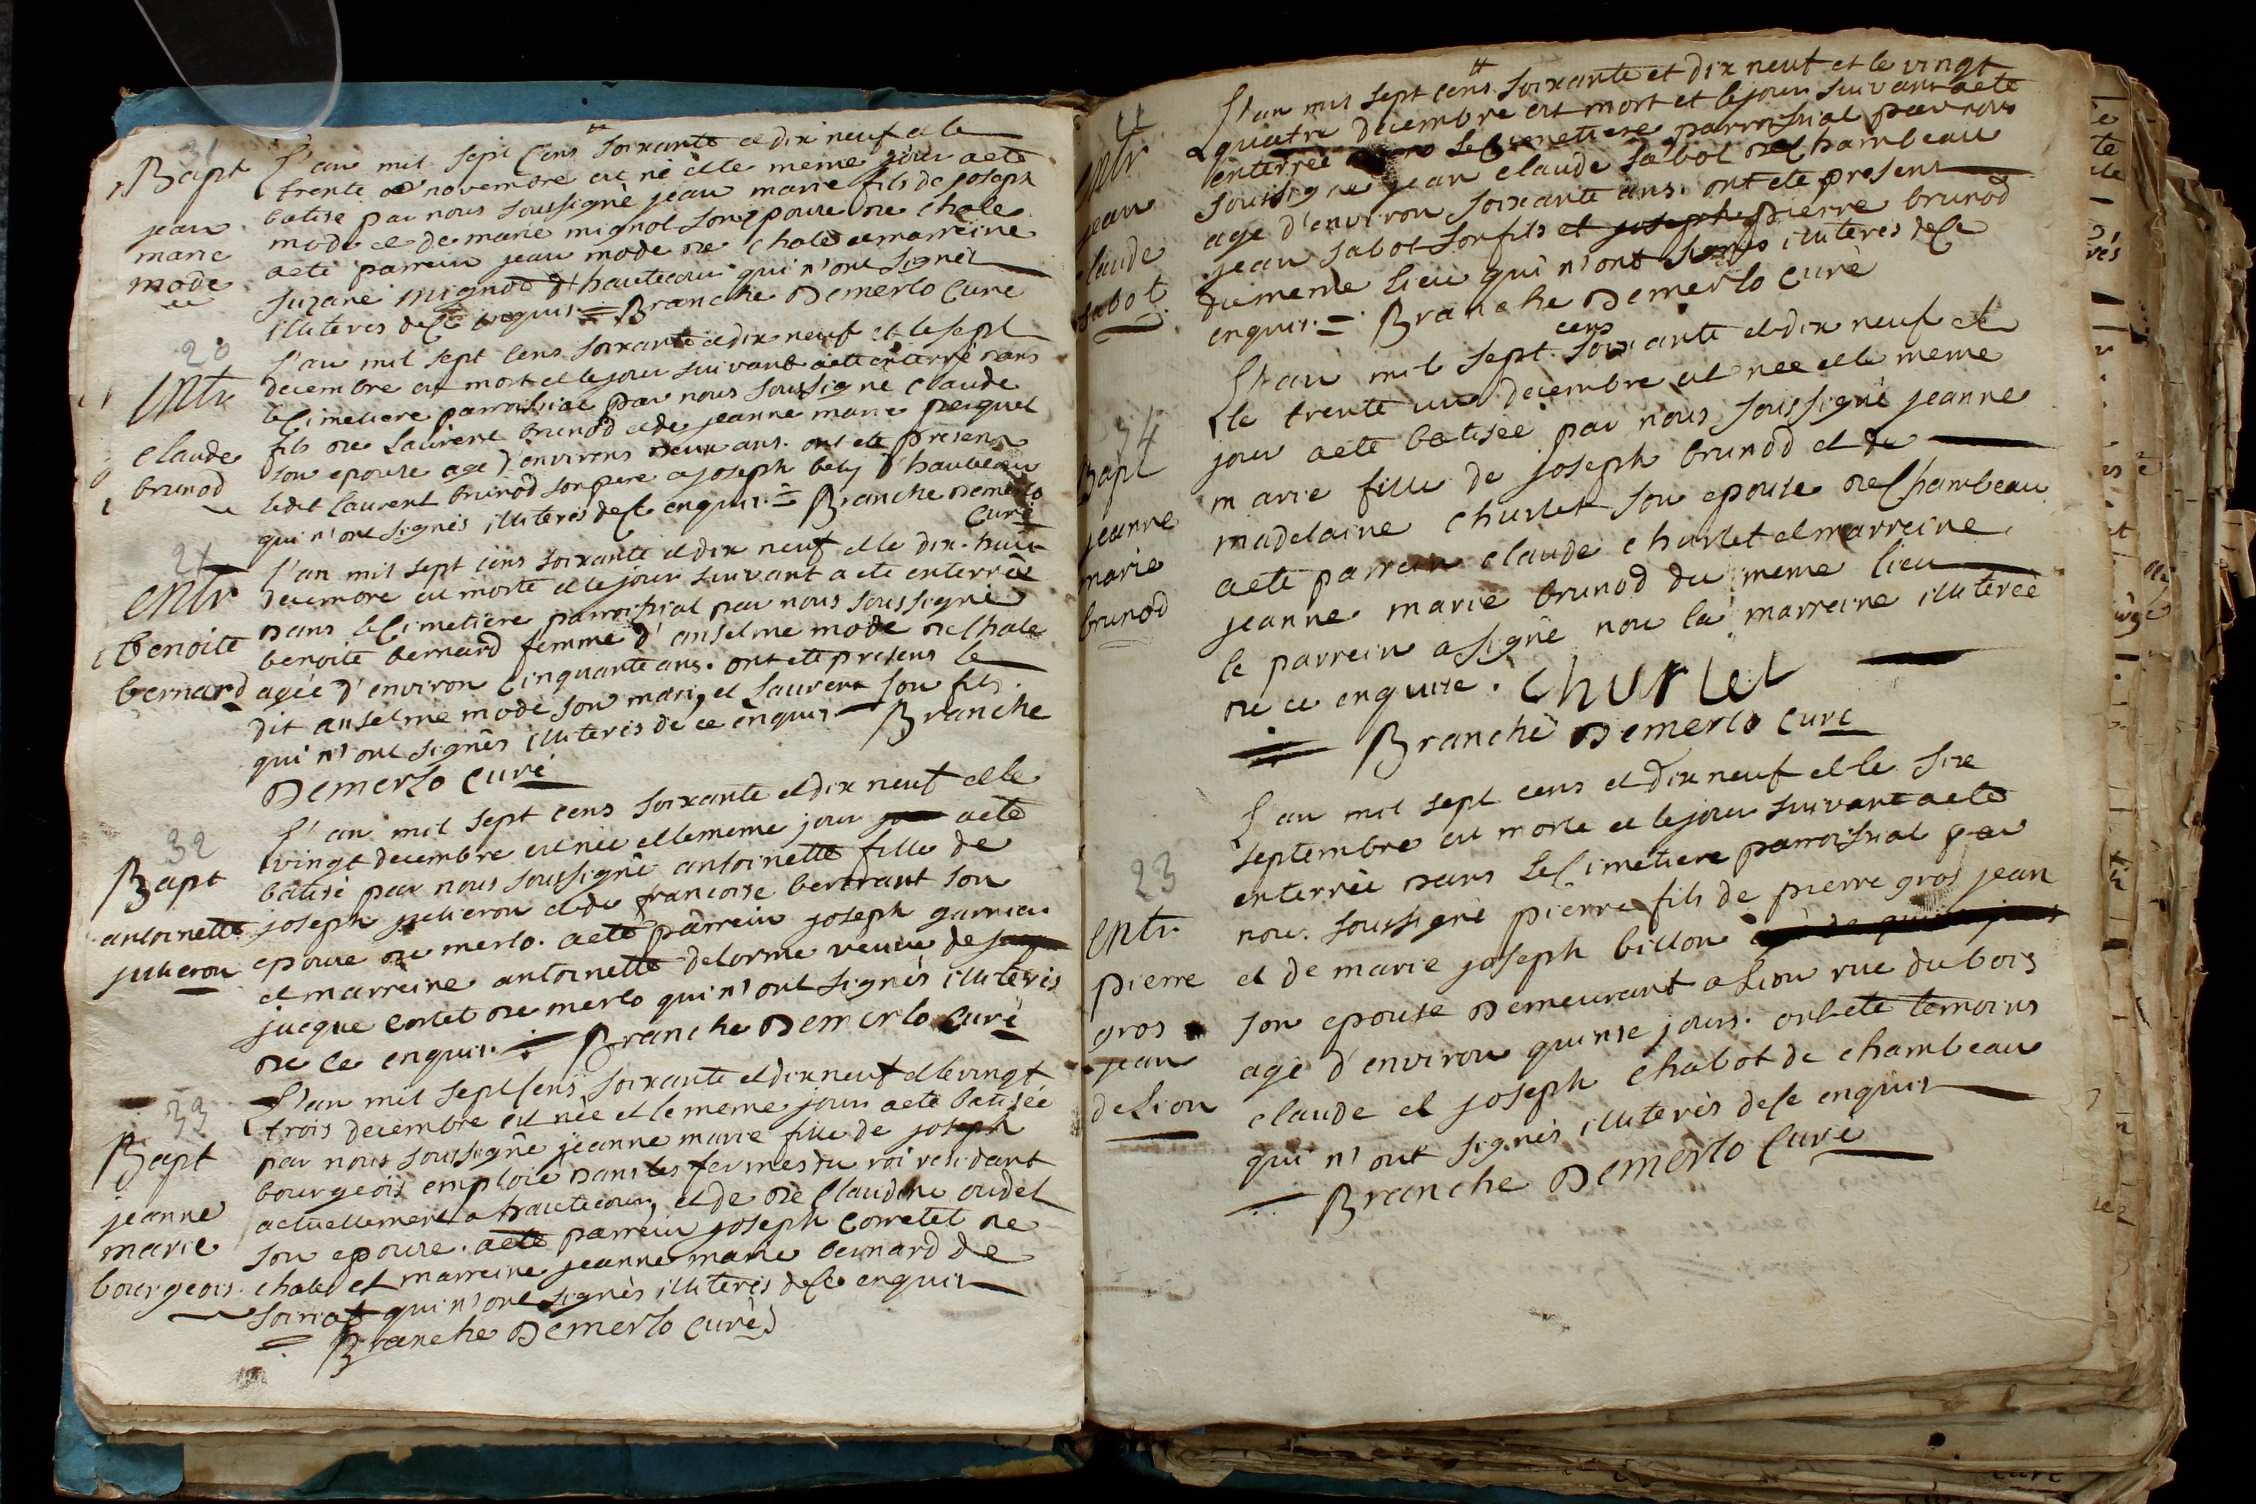 31
Bapt
jean
marie
mode
L'an mil sept cens soixante et dix neuf et le
trente de novembre est né et le meme jour a eté
batisé par nous soussigné jean marie fils de joseph
mode et de marie mignot son epouse de chale
a eté parrein jean mode de chale et marreine
suzane mignod d'hautecour qui n'ont signés
illiterés de ce enquis = Branche Demerlo Curé
20
Entr
claude
brunod
L'an mil sept cens soixante et dix neuf et le sept
decembre est mort et le jour suivant a eté enterré dans
le Cimetiere parroissial par nous soussigné claude
fils de Laurent brunod et de jeanne marie perquet
son epouse agé d'environs deux ans. ont eté presens
ledit laurent brunod son pere et joseph bely d'hautecour
qui n'ont signés illiterés de ce enquis = Branche Demerlo
Curé
21
Entr
benoite
bernard
L'an mil sept cens soixante et dix neuf et le dix-huit
decembre est morte et le jour suivant a eté enterrée
dans le Cimetiere parroissial par nous soussigné
benoite bernard femme d'anselme mode de Chale
agée d'environ cinquante ans. ont eté presens le
dit anselme mode son mari, et laurent son fils.
qui n'ont signés illiterés de ce enquis — Branche
Demerlo Curé
32
Bapt
antoinette
julieron
L'an mil sept cens soixante et dix neuf et le
vingt decembre est née et le meme jour a eté
batisé par nous soussigné antoinette fille de
joseph julieron et de francoise bertrant son
epouse de merlo. a eté parrein joseph
et marreine antoinette delorme veuve de
jacque cortet de merlo qui n'ont signés illiterés
de ce enquis. — Branche Demerlo Curé
33
Bapt
jeanne
marie
bourgeois
L'an mil sept cens soixante et dix neuf et le vingt
trois decembre est née et le meme jour a eté batisée
par nous soussigné jeanne marie fille de joseph
bourgeois emploié dans les fermes du roi residant
actuellement a hautecour, et de de Claudine oudet
son epouse. a eté parrein joseph corretet de
chale et marreine jeanne marie bernard de
soiriat qui n'ont signés illiterés de ce enquis
= Branche Demerlo Curé
Entr
jean
claude
sabot
L'an mil sept cens soixante et dix neuf et le vingt
quatre decembre est mort et le jour suivant a eté
enterrée le Cimetiere parroissial par nous
soussigné jean claude sabot de Chambeau
agé d'environ soixante ans. ont eté presens
jean sabot son fils et joseph pierre brunod
du meme lieu qui n'ont signés illiterés de Ce
enquis. = Branche Demerlo Curé
34
Bapt
jeanne
marie
brunod
L'an mil sept cens soixante et dix neuf et
le trente un decembre est née et le meme
jour a eté batisée par nous soussigné jeanne
marie fille de joseph brunod et de
madelaine churlet son epouse de Chambeau
a eté parrein claude churlet et marreine
jeanne marie brunod du meme lieu
le parrein a signé non la marreine illiterée
de ce enquise. Churlet
= Branche Demerlo Curé
23
Entr
pierre
gros
jean
de Lion
L'an mil sept cens et dix neuf et le six
septembre est morte et le jour suivant a eté
enterrée dans le Cimetiere parroissial par
nous soussigné pierre fils de pierre gros jean
et de marie joseph billon
son epouse demeurant a Lion rue du bois
agé d'environ quinse jours. ont eté temoins
claude et joseph chabot de chambeau
qui n'ont signés illiterés de Ce enquis
— Branche Demerlo Curé